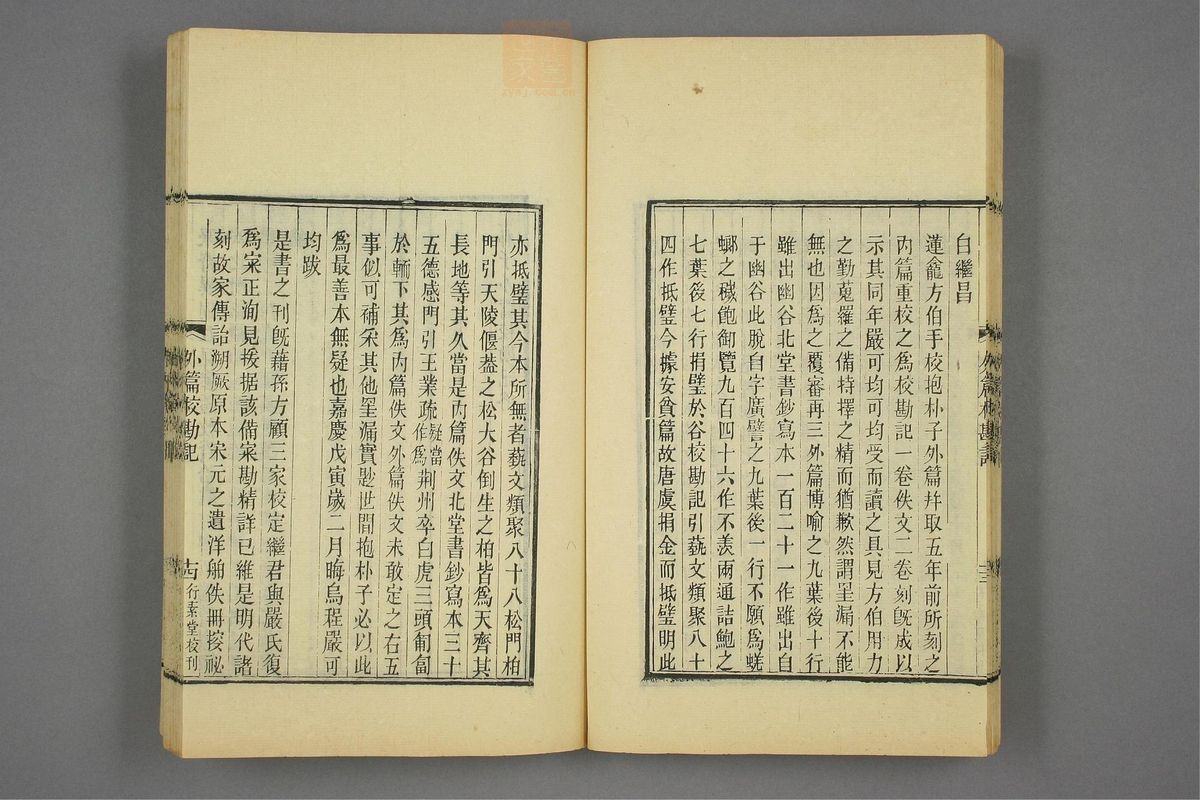 白繼昌
蓮龕方伯手校抱朴子外篇幷取五年前所刻之
內篇重校之爲校勘記一卷佚文二卷刻旣成以
示其同年嚴可均可均受而讀之具見方伯用力
之勤蒐羅之備持擇之精而猶歉然謂罣漏不能
無也因爲之覆審再三外篇博喻之九葉後十行
雖出幽谷北堂書鈔寫本一百二十一作雖出自
于幽谷此脫自字廣譬之九葉後一行不願爲蜣
蜋之穢飽御覽九百四十六作不羨兩通詰鮑之
七葉後七行捐璧於谷校勘記引蓺文類聚八十
四作抵璧今據安貧篇故唐虞捐金而抵璧明此
外篇校勘記
亦抵璧其今本所無者蓺文類聚八十八松門柏
門引天陵偃蓋之松大谷倒生之柏皆爲天齊其
長地等其久當是內篇佚文北堂書鈔寫本三十
五德感門引王業疏疑當作爲荆州卒白虎三頭匍匐
於輀下其爲內篇佚文外篇佚文未敢定之右五
事似可補采其他罣漏實尟世間抱朴子必以此
爲最善本無疑也嘉慶戊寅歲二月晦烏程嚴可
均跋
是書之刊旣藉孫方顧三家校定繼君與嚴氏復
爲寀正洵見援据該備寀勘精詳已維是明代諸
刻故家傳詒溯厥原本宋元之遺洋舶佚冊按祕
外篇校勘記
行素堂校刊